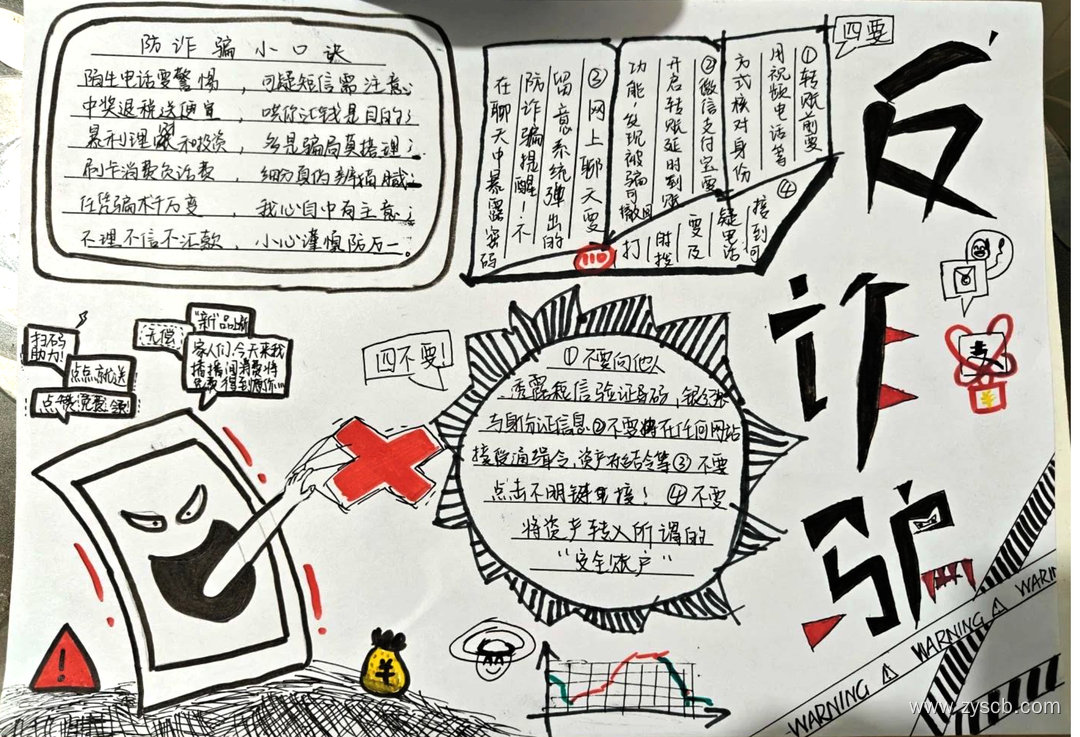 防诈骗小口诀
陌生电话要警惕，可疑短信需注意；
中奖退税送便宜，哄你汇钱是目的；
暴利理财和投资，多是骗局莫搭理；
刷卡消费负话费，细分真伪辨猫腻；
任凭骗术千万变，我心自中有主意；
不理不信不汇款，小心谨慎防万一。
四要
①转账前要
用视频电话等
方式核对身份
②微信支付宝要
开启转账延时到账
功能，发现被骗可撤回
③网上聊天要
留意系统弹出的
防诈骗提醒！不
在聊天中暴露密码
④
接到可
疑电话
要及
时拨
打
110
反诈骗
扫码
助力！
点点就送
点赞免费领
无偿
“新”品上新
家人们，今天来我
播播间消费将
免费得到
四不要！
①不要向他人
透露短信验证码，银行账
与身份证信息②不要将在任何网站
接受通缉令，资产冻结令等③不要
点击不明链接！④不要
将资产转入所谓的
“安全账户”
¥
¥
WARNING WARNING WARNIN
www.zyscb.com